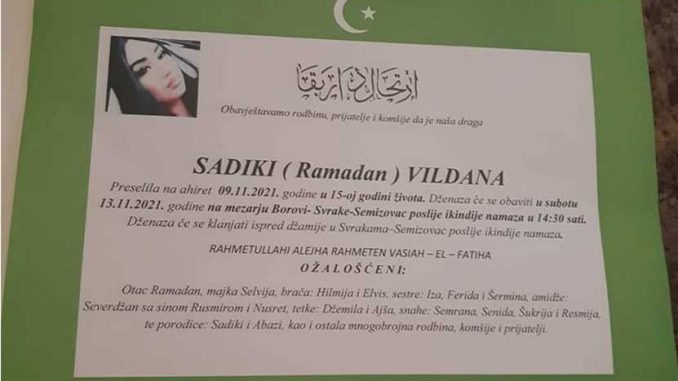 ارتحال دار بقا
Obavještavamo rodbinu, prijatelje i komšije da je naša draga
SADIKI ( Ramadan ) VILDANA
Preselila na ahiret 09.11.2021. godine u 15-oj godini života. Dženaza če se obaviti u subotu
13.11.2021. godine na mezarju Borovi- Svrake-Semizovac poslije ikindije namaza u 14:30 sati.
Dženaza če se klanjati ispred džamije u Svrakama–Semizovac poslije ikindije namaza.
RAHMETULLAHI ALEJHA RAHMETEN VASIAH – EL – FATIHA
O Ž A L O Š Ć E N I :
Otac Ramadan, majka Selvija, brača: Hilmija i Elvis, sestre: Iza, Ferida i Šermina, amidže:
Severdžan sa sinom Rusmirom i Nusret, tetke: Džemila i Ajša, snahe: Semrana, Senida, Šukrija i Resmija,
te porodice: Sadiki i Abazi, kao i ostala mnogobrojna rodbina, komšije i prijatelji.